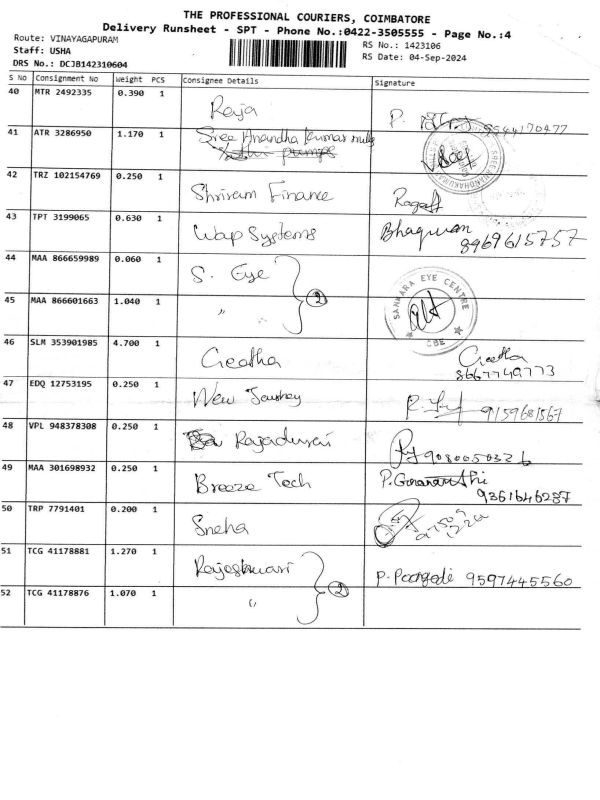 THE PROFESSIONAL COURIERS, COIMBATORE
Delivery Runsheet - SPT - Phone No.:0422-3505555 - Page No.:4
Route: VINAYAGAPURAM
RS No.: 1423106
Staff: USHA
RS Date: 04-Sep-2024
DRS No.: DCJB142310604
S No Consignment No Weight PCS Consignee Details Signature
40 MTR 2492335 0.390 1 Raja P. 9344170477
41 ATR 3286950 1.170 1 Sree Anandha Kumar mills
pumps
42 TRZ 102154769 0.250 1 Shriram Finance
43 TPT 3199065 0.630 1 Wap Systems Bhagwan
8969615757
44 MAA 866659989 0.060 1 S. Eye
2
SANKARA EYE CENTRE
CBE
45 MAA 866601663 1.040 1 "
46 SLM 353901985 4.700 1 Geetha Geetha
8667740773
47 EDQ 12753195 0.250 1 New 9159681567
48 VPL 948378308 0.250 1 Rajadurai 9080050326
49 MAA 301698932 0.250 1 Breeze Tech P.
9361646287
50 TRP 7791401 0.200 1 Sneha
51 TCG 41178881 1.270 1 Rajeshwari P. 9597445560
2
52 TCG 41178876 1.070 1 "